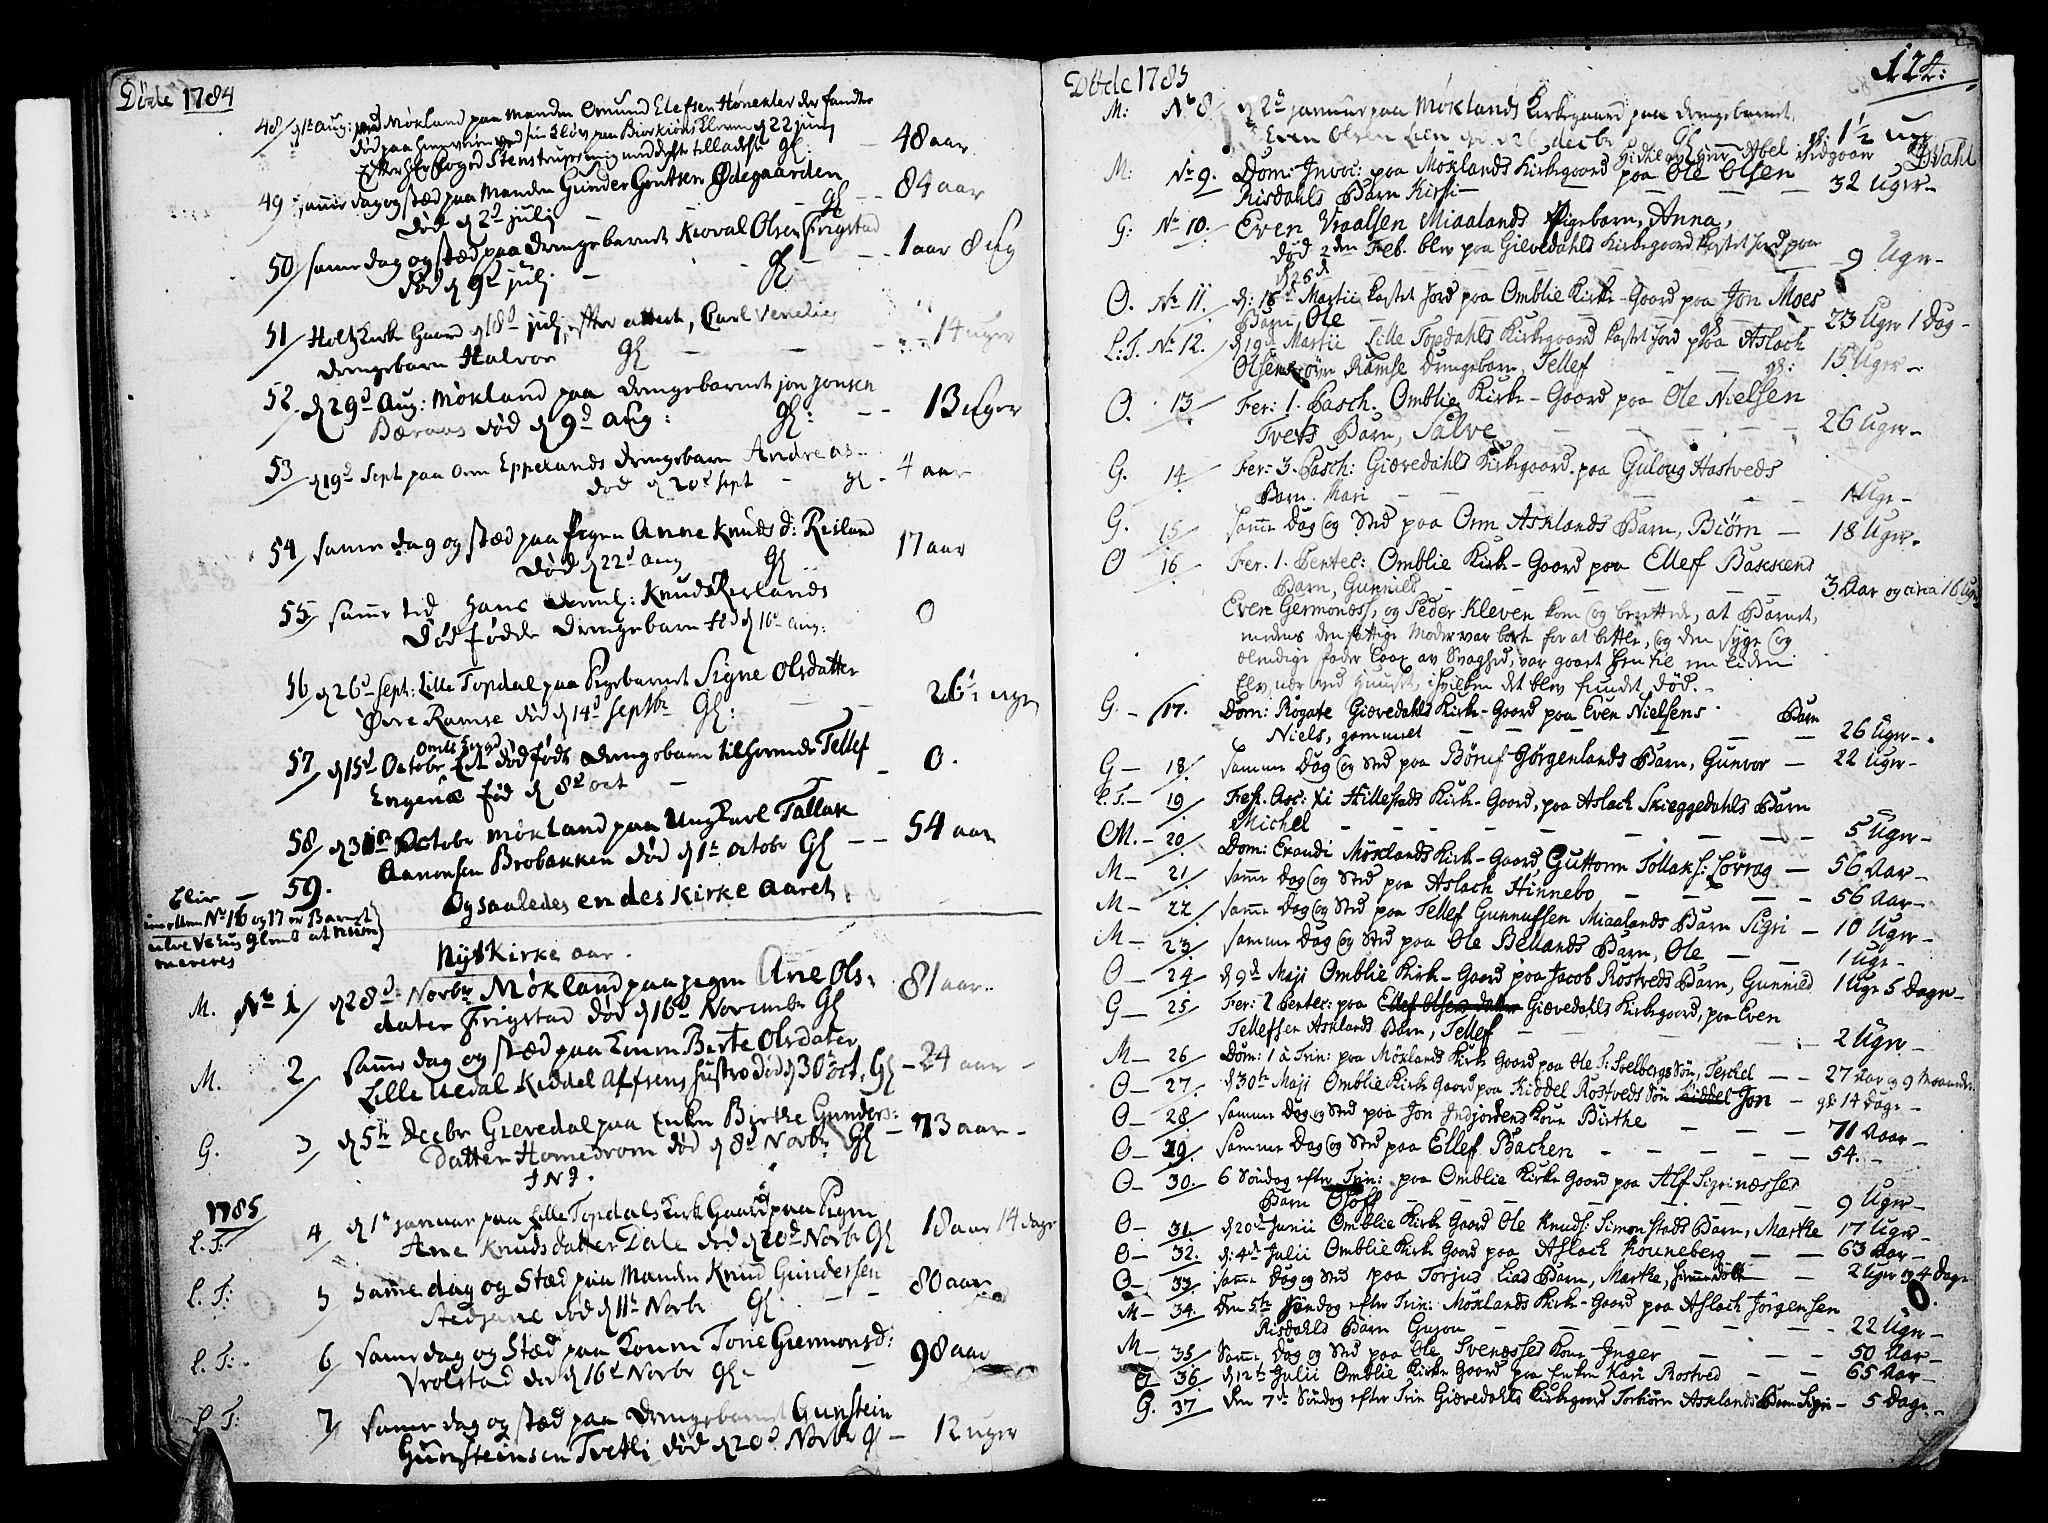 Døde 1784
48/ d 1t Aug: ved Møkland paa Manden Omund Elefsen der fandtes
død paa ved sin Elv paa Elven d 22 juny
Efter Hr Foged Stenstrups tilladelse Gl: 48 aar
49 samme dag og stæd paa Manden Gunder Gontsen Ødegaarden
død d 2d julj Gl 84 aar
50/ same dag og stæd paa drengebarnet Kioval Olsen Frigstad
død d 9d julj Gl 1 aar 8 ug
51/ Holtz Kirke Gaard d 18d julj, efter attest, Carl
drengebarn Halvor Gl 14 uger
52. d 29d Aug: Møkland paa drengebarnet jon jonsen
Bæraas død d 9d Aug: Gl: 13 uger
53/ d 19d Sept paa Orm Eppelands drengebarn Andreas
død d 20d sept Gl 4 aar
54/ samme dag og stæd paa Pigen Anne Knuds d: Reisland
død d 22d aug Gl 17 aar
55/ samme tid hans Knud Reislands
Død fødde drengebarn fød d 16d aug: 0
56/ d 26d sept: Lille Topdal paa Pigebarnet Signe Olsdatter
Øvre Ramse død d 14d septbr Gl: 26½ uger
57/ d 15d Octobr Et dødfødt drengebarn tilhørende Tellef
Engenæs fød d 8d oct 0.
58/ d 31d Octobr Møkland paa Ungkarl Tallak
Aanonsen Brobakken død d 1t octobr Gl 54 aar
Og saaledes endes Kirke Aaret
59.
Bliv
imellem No 16 og 17 er Barnet
maneres
Nyt Kirke aar.
M. No 1/ d 28d Novbr Møkland paa pigen Ane Ols:
dater Frigstad død d 16d Novembr Gl 81 aar
M. 2/ same dag og stæd paa Konen Berte Olsdater
Lille Uedal Keddel Alfsens Hustro død d 30t oct, Gl 24 aar
G. 3/ d 5t Decbr Gievedal paa Enken Birthe Gunders:
Datter Homedrom død d 8d Novbr Gl 73 aar
J N J.
1785
L. T: 4/ d 1t januar paa Lille Topdals Kirk Gaard paa Pigen
Ane Knudsdatter Dale død d 20d Novbr Gl 18 aar 14 dage
L. T: 5 Samme dag og Stæd paa Manden Knud Gundersen
Stedjane død d 11t Novbr Gl 80 aar
L. T: 6/ same dag og Stæd paa Konen Tone Giermonsd:
Vrolstad død d 16d Novbr Gl. 98 aar
L T: 7/ same dag og stæd paa Drengebarnet Gunstein
Gunsteinsen Tvetli død d 20d Novbr Gl 12 uger
Døde 1785
124:
M: No 8/ d 2d januar paa Møklands Kirkegaard paa drengebarnet
Even Olsen Lien død d 26 decbr Gl 1½ ug
M: No 9. Dom: Invoc: paa Møklands Kirkegaard paa Ole Olsen
Risdahls Barn Kirsti 32 Uger
G: No 10. Even Vraalsen Miaalands Pigebarn, Anna,
død 2den Feb. blev paa Gievedahls Kirkegaard kastet Jord paa
d 26d 9 Uger
O. No 11. d: 18d Martii kastet Jord paa Omblie Kirke-Gaard paa Jon Moes
Barn, Ole 23 Uger 1 Dag
L: T. No 12. d 19d Martii Lille Topdahls Kirkegaard kastet Jord paa Aslach
Olsen øvre Ramse Drengebarn, Tellef gl: 15 Uger
O. 13 Fer: 1. Pasch. Omblie Kirke-Gaard paa Ole Nielsen
Tvets Barn, Salve 26 Uger
G. 14 Fer: 3. Pasch: Giævedahls Kirkegaard paa Guloug Hastveds
Barn. Mari 1 Uge
G. 15/ Samme Dag og Sted paa Orm Asklands Barn, Biørn 18 Uger
O 16 Fer. 1. Pentec: Omblie Kirke-Gaard paa Ellef Bakkens
Barn, Gunnild 3 Aar og circa 16 Uger
Even Germonæs, og Peder Kleven kom og berettede, at Barnet,
medens den fattige Moder var borte for at bettle, og den syge og
elendige fader laae av Svaghed, var gaaet hen til en liden
Elv, nær ved Huuset, i hvilken det blev fundet død.
G. 17. Dom: Rogate Giævedahls Kirke-Gaard paa Even Nielsens Barn
Niels, gammel 26 Uger
G 18/ Sammer Dag og Sted paa Børuf Jørgenlands Barn, Gunvor 22 Uger
L. T. 19 Fest. Asc: Xi Hillestads Kirke-Gaard, paa Aslach Skieggedahls Barn
Michel 5 Uger
M. 20 Dom: Exaudi Møklands Kirke-Gaard Guttorm Tollaks: Lovrag 56 Aar
M 21 Samme Dag og Sted paa Aslach Hinnebo 56 Aar
M 22 Samme Dag og Sted paa Tellef Gunnufsen Miaalands Barn Sigri 10 Uger
M 23 Sammer Dag og Sted paa Ole Bellands Barn, Ole 1 Uge
O 24 d 9d Maji Omblie Kirke-Gaard paa Jacob Rostveds Barn, Gunnild 1 Uge 5 Dage
G 25 Fer: 2 Pentec: paa Ellef Olsens datter Giævedahls Kirkegaard, paa Even
Tellefsen Asklands Barn, Tellef 2 Uger
M 26 Dom: 1 à Trin: paa Møklands Kirke Gaard paa Ole T: Sælbergs Søn, Terkel 27 Aar og 9 Maaneder
O 27. d 30t Maji Omblie Kirke Gaard paa Kiddel Rostveds Søn Kiddel Jon gl: 14 Dage
O 28 sammer Dag og Sted paa Jon Indjordens Kone Birthe 71 Aar
O 29 Sammer Dag og Sted paa Ellef Bachen 54.
O 30. 6 Søndag efter Trin: paa Omblie Kirke Gaard paa Alf Sigrinæsses
Barn Oloff 9 Uger
O 31 d 20d Junii Omblie Kirke Gaard Ole Knuds: Simonstads Barn, Marthe 17 Uger
O 32. d: 4d Julii Omblie Kirke Gaard paa Aslach Kouneberg 63 Aar
O 33 samme Dag og Sted paa Torjus Liad Barn, Marthe, 2 Uger og 4 Dage
M 34. Den 5te Søndag efter Trin: Møklands Kirke-Gaard paa Aslach Jørgensen
Risdahls Barn 22 Uger
M 35 Samme Dag og Sted paa Ole Svenæsses Kone Inger 50 Aar
O 36 d 12t Julii Omblie Kirke Gaard paa Enken Kari Rostved 65 Aar
G. 37 Den 7de Søndag efter Trin Giævedahls Kirkegaard Torbiørn Asklands Barn Sigri 5 Dage